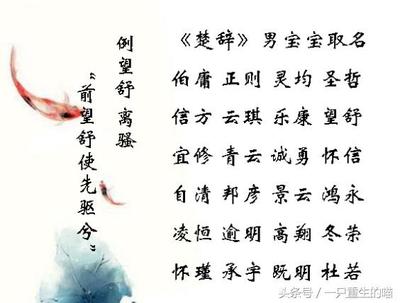 《楚辞》男宝宝取名
伯庸 正则 灵均 圣哲
信方 云琪 乐康 望舒
宜修 青云 诚勇 怀信
自清 邦彦 景云 鸿永
凌恒 逾明 高翔 冬荣
怀瑾 承宇 既明 杜若
例望舒 离骚
“前望舒使先驱兮”
头条号 / 一只重生的喵